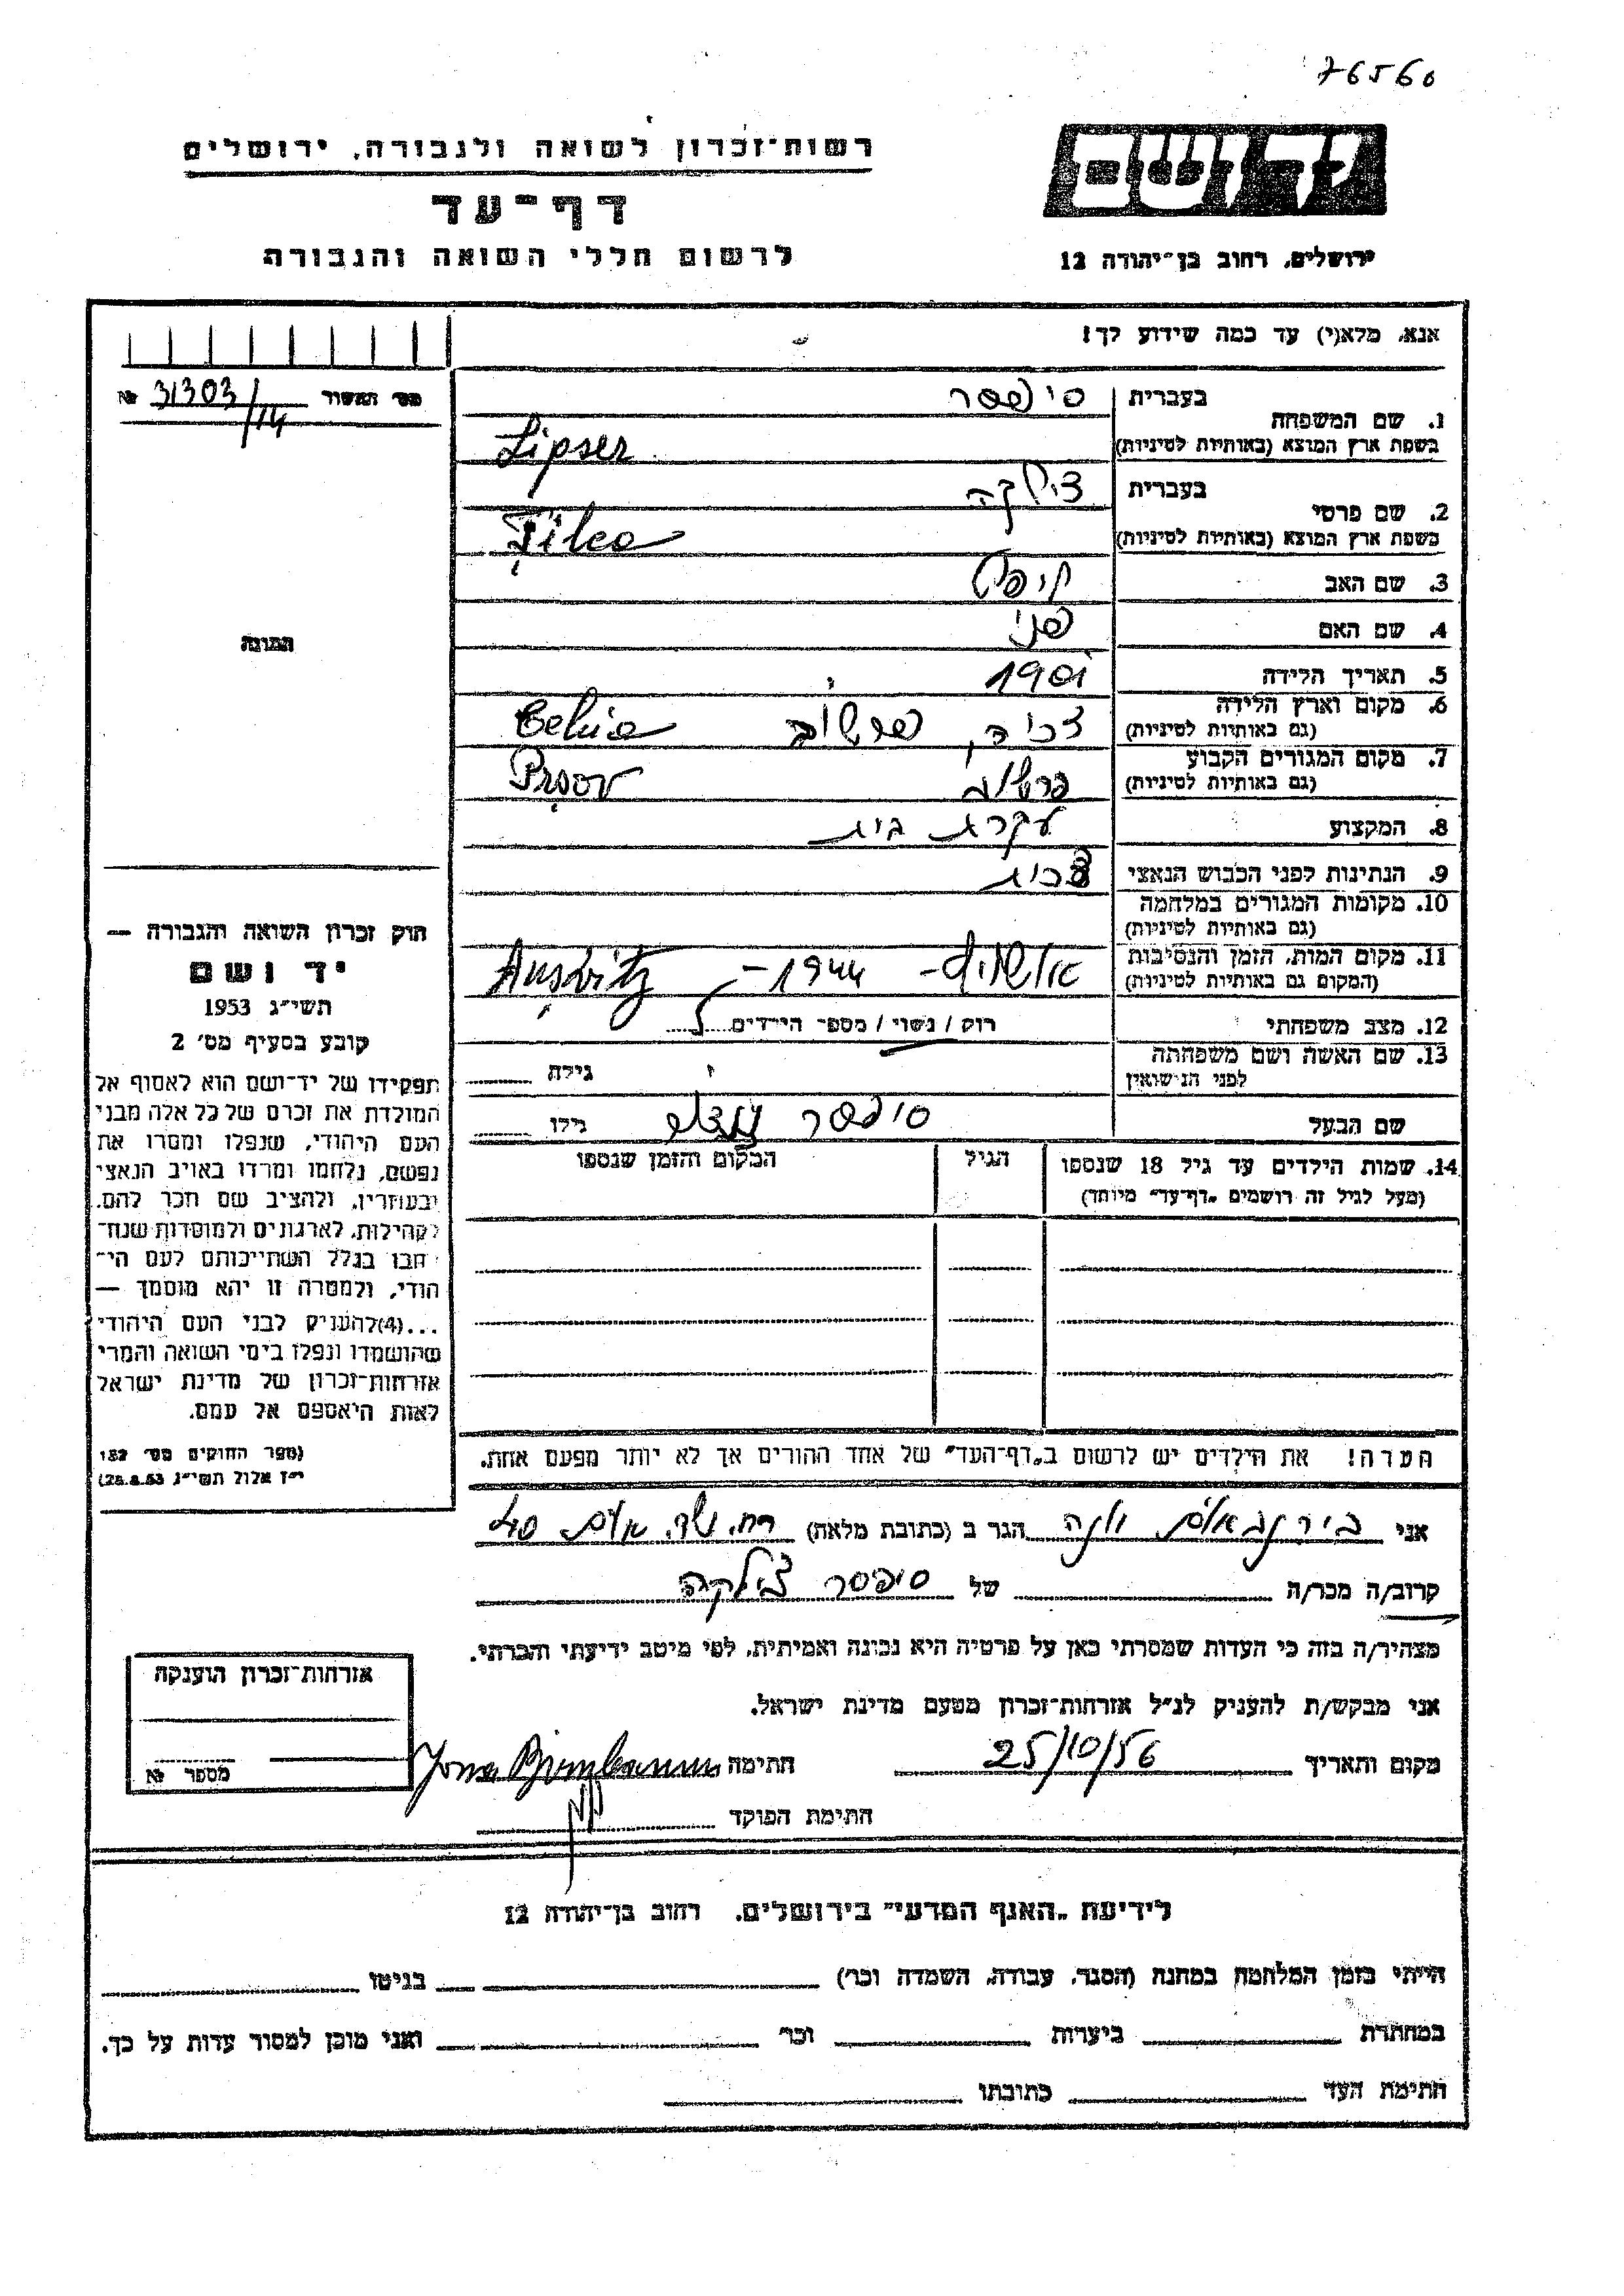 76560
רשות־זכרון לשואה ולגבורה, ירושלים
דף־עד
לרשום חללי השואה והגבורה
יד ושם
ירושלים, רחוב בן־יהודה 12
אנא, מלא(י) עד כמה שידוע לך!
מס' האשור 31303/14 №
1. שם המשפחה
בעברית ליפסר
בשפת ארץ המוצא (באותיות לטיניות) Lipser
2. שם פרטי
בעברית צילקה
בשפת ארץ המוצא (באותיות לטיניות)
3. שם האב
4. שם האם פני
5. תאריך הלידה 1901
6. מקום וארץ הלידה
(גם באותיות לטיניות)
7. מקום המגורים הקבוע
(גם באותיות לטיניות) פרשוב
8. המקצוע עקרת בית
9. הנתינות לפני הכבוש הנאצי צכית
10. מקומות המגורים במלחמה
(גם באותיות לטיניות)
11. מקום המות, הזמן והנסיבות
(המקום גם באותיות לטיניות) אושויץ - 1944 -
12. מצב משפחתי רוק / נשוי / מספר הילדים
13. שם האשה ושם משפחתה
לפני הנישואין גילה
שם הבעל ליפסר גילו
14. שמות הילדים עד גיל 18 שנספו
(מעל לגיל זה רושמים "דף־עד" מיוחד)
הגיל
המקום והזמן שנספו
התמונה
חוק זכרון השואה והגבורה —
יד ושם
תשי"ג 1953
קובע בסעיף מס' 2
תפקידו של יד־ושם הוא לאסוף אל
המולדת את זכרם של כל אלה מבני
העם היהודי, שנפלו ומסרו את
נפשם, נלחמו ומרדו באויב הנאצי
ובעוזריו, ולהציב שם וזכר להם,
לקהילות, לארגונים ולמוסדות שנח־
רבו בגלל השתייכותם לעם הי־
הודי, ולמטרה זו יהא מוסמך —
...(4) להעניק לבני העם היהודי
שהושמדו ונפלו בימי השואה והמרי
אזרחות־זכרון של מדינת ישראל
לאות היאספם אל עמם.
(ספר החוקים מס' 132
י"ז אלול תשי"ג 28.8.53)
הערה! את הילדים יש לרשום ב"דף־העד" של אחד ההורים אך לא יותר מפעם אחת.
אני בירנבאום יונה הגר ב (כתובת מלאה) 40
קרוב/ה מכר/ה של ליפסר צילקה
מצהיר/ה בזה כי העדות שמסרתי כאן על פרטיה היא נכונה ואמיתית, לפי מיטב ידיעתי והכרתי.
אני מבקש/ת להעניק לנ"ל אזרחות־זכרון מטעם מדינת ישראל.
מקום ותאריך 25/10/56 חתימה
חתימת הפוקד
אזרחות־זכרון הוענקה
מספר №
לידיעת "האגף המדעי" בירושלים, רחוב בן־יהודה 12
הייתי בזמן המלחמה במחנה (הסגר, עבודה, השמדה וכו') בגיטו
במחתרת ביערות וכו' ואני מוכן למסור עדות על כך.
חתימת העד כתובתו